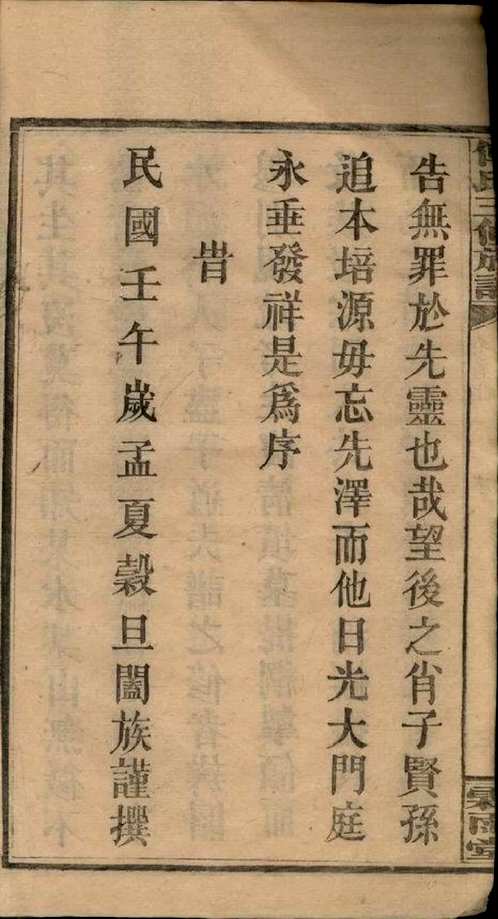 告無罪於先靈也哉望後之肖子賢孫
追本培源毋忘先澤而他日光大門庭
永垂發祥是爲序
旹
民國壬午歲孟夏穀旦闔族謹撰